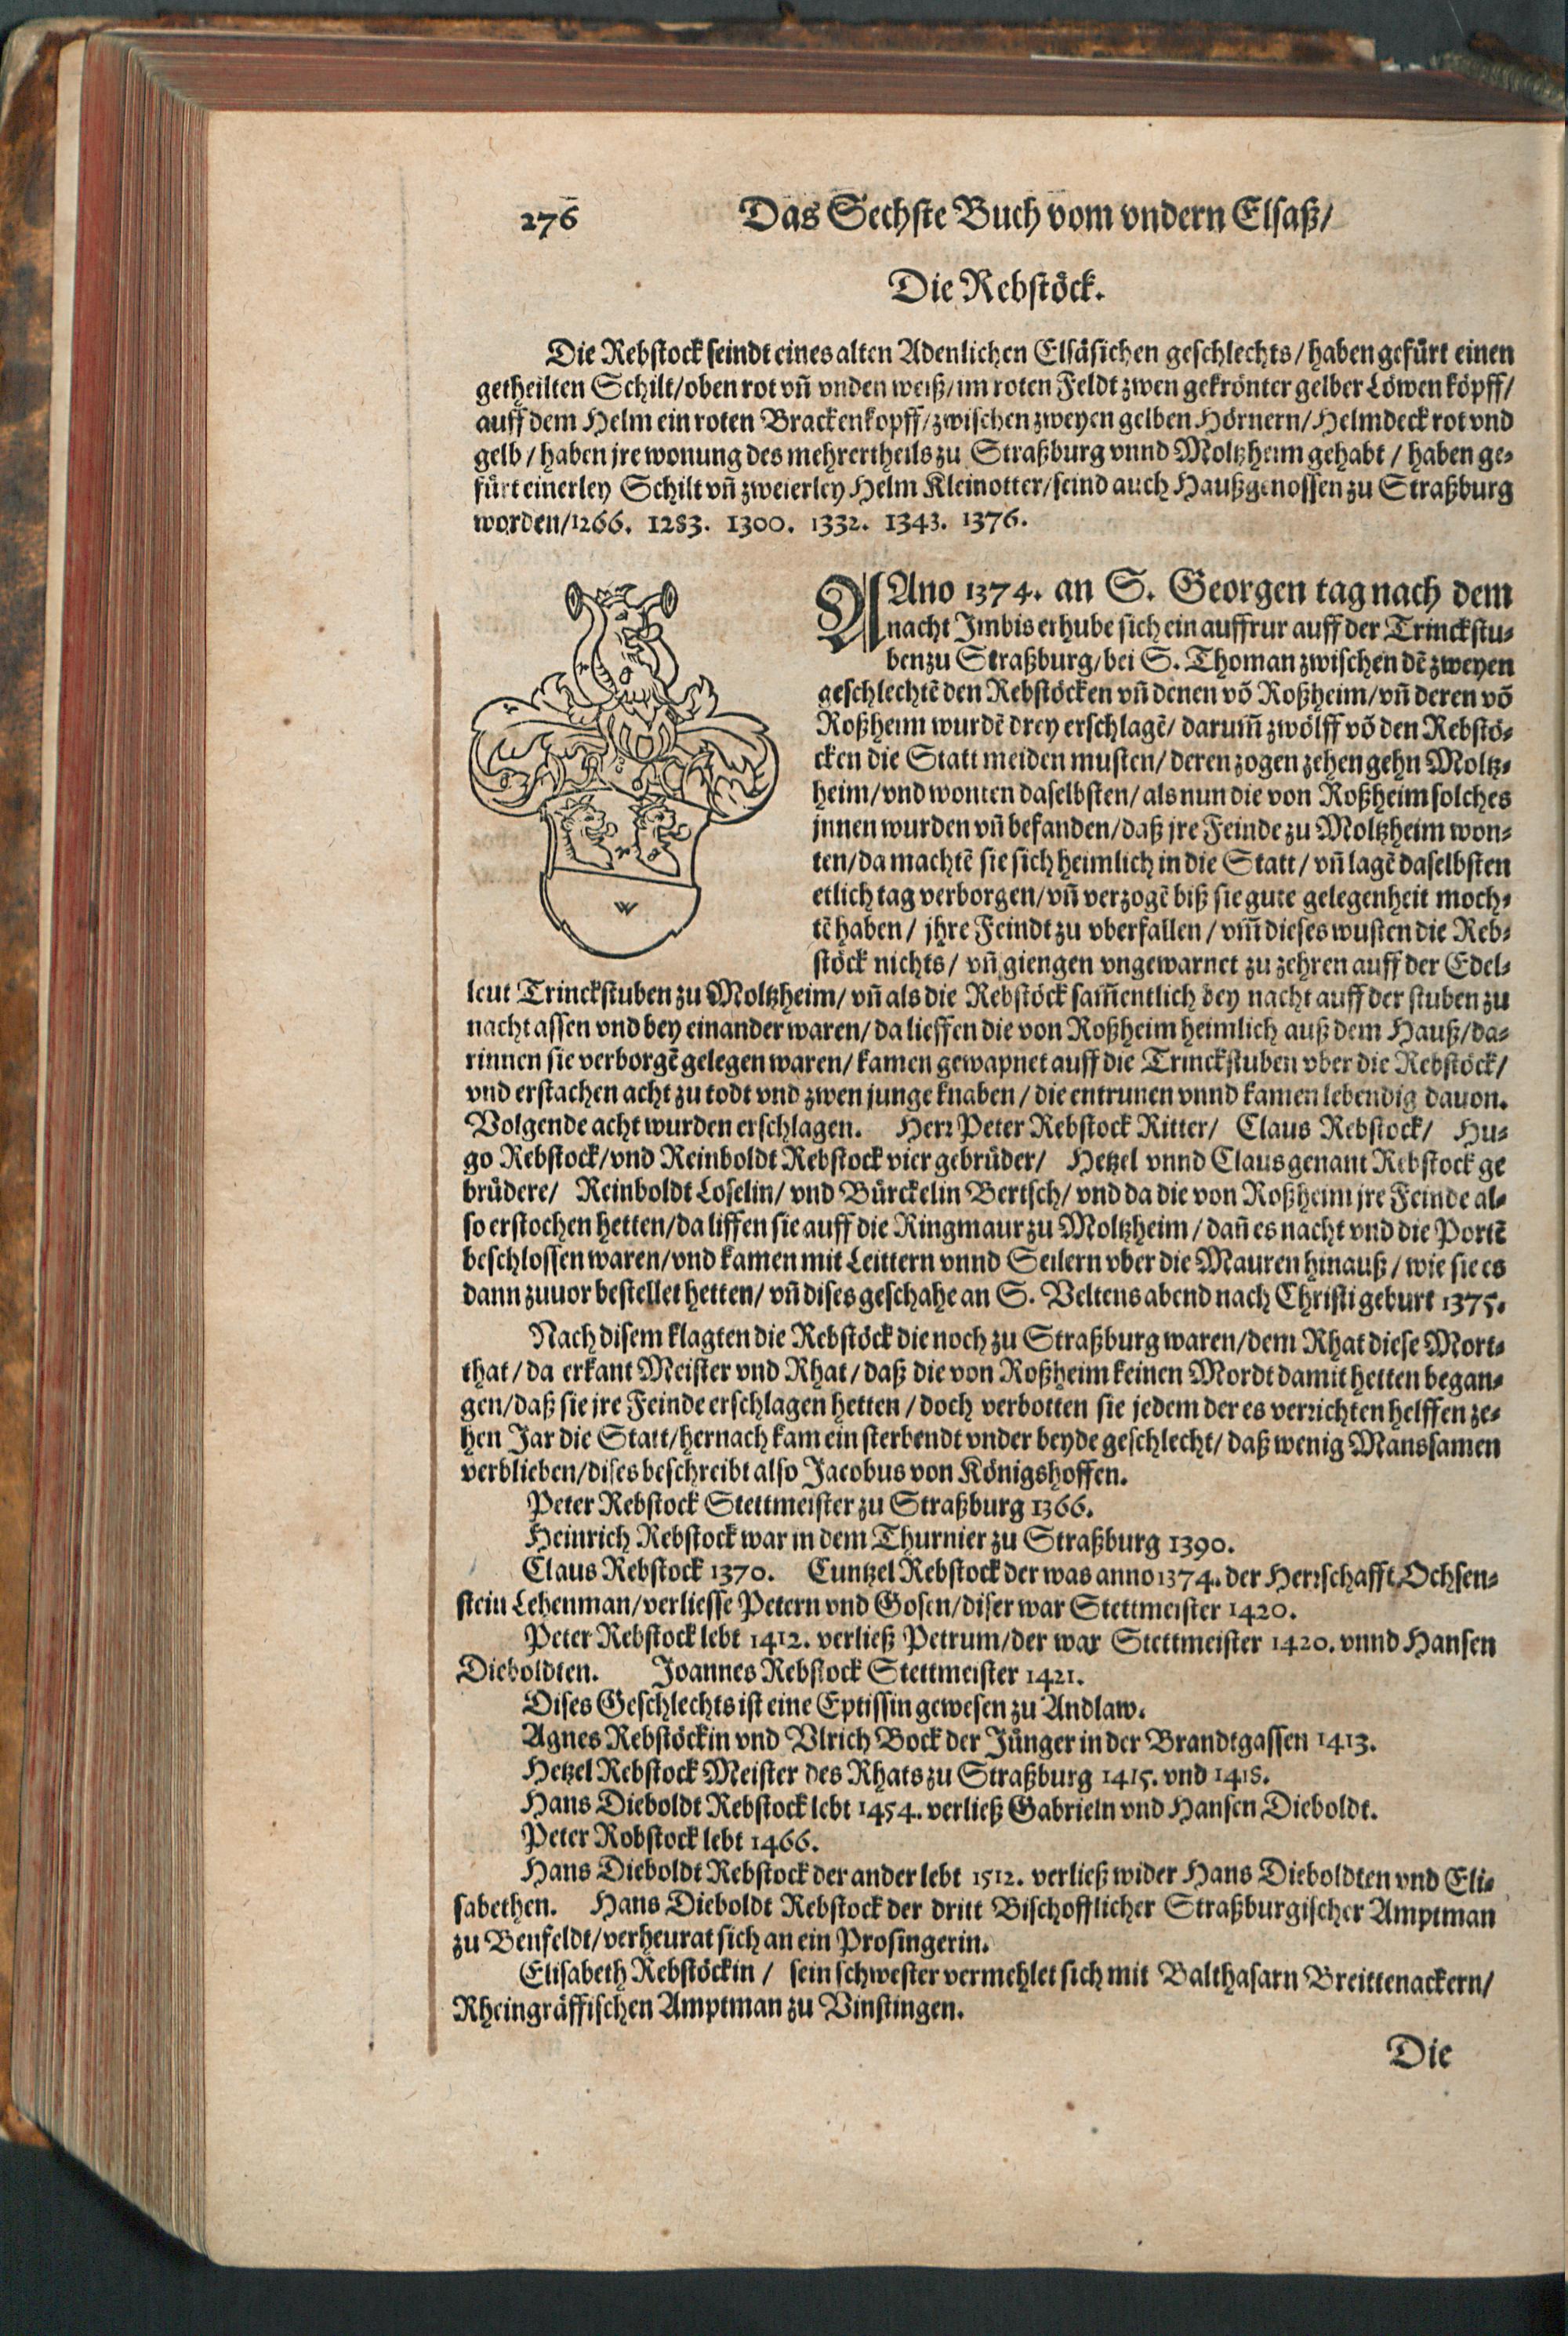 276 Das Sechste Buch vom vndern Elsaß/
Die Rebstöck.
Die Rebstock seindt eines alten Adenlichen Elsäsichen geschlechts/ haben gefürt einen
getheilten Schilt/ oben rot vñ vnden weiß/ im roten Feldt zwen gekrönter gelber Löwen köpff/
auff dem Helm ein roten Brackenkopff/ zwischen zweyen gelben Hörnern/ Helmdeck rot vnd
gelb / haben jre wonung des mehrertheils zu Straßburg vnnd Moltzheim gehabt / haben ge-
fürt einerley Schilt vñ zweierley Helm Kleinotter/ seind auch Haußgenossen zu Straßburg
worden/ 1266. 1283. 1300. 1332. 1343. 1376.
AAno 1374. an S. Georgen tag nach dem
nacht Imbis erhube sich ein auffrur auff der Trinckstu-
ben zu Straßburg/ bei S. Thoman zwischen dē zweyen
geschlechtē den Rebstöcken vñ denen vō Roßheim/ vñ deren vō
Roßheim wurdē drey erschlagē/ darum̃ zwölff vō den Rebstö-
cken die Statt meiden musten/ deren zogen zehen gehn Moltz-
heim/ vnd wonten daselbsten/ als nun die von Roßheim solches
jnnen wurden vñ befanden/ daß jre Feinde zu Moltzheim won-
ten/ da machtē sie sich heimlich in die Statt/ vñ lagē daselbsten
etlich tag verborgen/ vñ verzogē biß sie gute gelegenheit moch-
tē haben / jhre Feindt zu vberfallen / vm̃ dieses wusten die Reb-
stöck nichts / vñ giengen vngewarnet zu zehren auff der Edel-
leut Trinckstuben zu Moltzheim/ vñ als die Rebstöck sam̃entlich bey nacht auff der stuben zu
nacht assen vnd bey einander waren/ da lieffen die von Roßheim heimlich auß dem Hauß/ da-
rinnen sie verborgē gelegen waren/ kamen gewapnet auff die Trinckstuben vber die Rebstöck/
vnd erstachen acht zu todt vnd zwen junge knaben / die entrunen vnnd kamen lebendig dauon.
Volgende acht wurden erschlagen. Herr Peter Rebstock Ritter/ Claus Rebstock/ Hu-
go Rebstock/ vnd Reinboldt Rebstock vier gebrüder/ Hetzel vnnd Claus genant Rebstock ge
brüdere/ Reinboldt Loselin/ vnd Bürckelin Bertsch/ vnd da die von Roßheim jre Feinde al-
so erstochen hetten/ da liffen sie auff die Ringmaur zu Moltzheim/ dañ es nacht vnd die Portē
beschlossen waren/ vnd kamen mit Leittern vnnd Seilern vber die Mauren hinauß / wie sie es
dann zuuor bestellet hetten/ vñ dises geschahe an S. Veltens abend nach Christi geburt 1375.
Nach disem klagten die Rebstöck die noch zu Straßburg waren/ dem Rhat diese Mort-
that / da erkant Meister vnd Rhat/ daß die von Roßheim keinen Mordt damit hetten began-
gen/ daß sie jre Feinde erschlagen hetten / doch verbotten sie jedem der es verrichten helffen ze-
hen Jar die Statt/ hernach kam ein sterbendt vnder beyde geschlecht/ daß wenig Manssamen
verblieben/ dises beschreibt also Jacobus von Königshoffen.
Peter Rebstock Stettmeister zu Straßburg 1366.
Heinrich Rebstock war in dem Thurnier zu Straßburg 1390.
Claus Rebstock 1370. Cuntzel Rebstock der was anno 1374. der Herrschafft Ochsen-
stein Lehenman/ verliesse Petern vnd Gosen/ diser war Stettmeister 1420.
Peter Rebstock lebt 1412. verließ Petrum/ der war Stettmeister 1420. vnnd Hansen
Dieboldten. Joannes Rebstock Stettmeister 1421.
Dises Geschlechts ist eine Eptissin gewesen zu Andlaw.
Agnes Rebstöckin vnd Vlrich Bock der Jünger in der Brandtgassen 1413.
Hetzel Rebstock Meister des Rhats zu Straßburg 1415. vnd 1418.
Hans Dieboldt Rebstock lebt 1454. verließ Gabrieln vnd Hansen Dieboldt.
Peter Robstock lebt 1466.
Hans Dieboldt Rebstock der ander lebt 1512. verließ wider Hans Dieboldten vnd Eli-
sabethen. Hans Dieboldt Rebstock der dritt Bischofflicher Straßburgischer Amptman
zu Benfeldt/ verheurat sich an ein Prosingerin.
Elisabeth Rebstöckin / sein schwester vermehlet sich mit Balthasarn Breittenackern/
Rheingräffischen Amptman zu Vinstingen.
Die
W